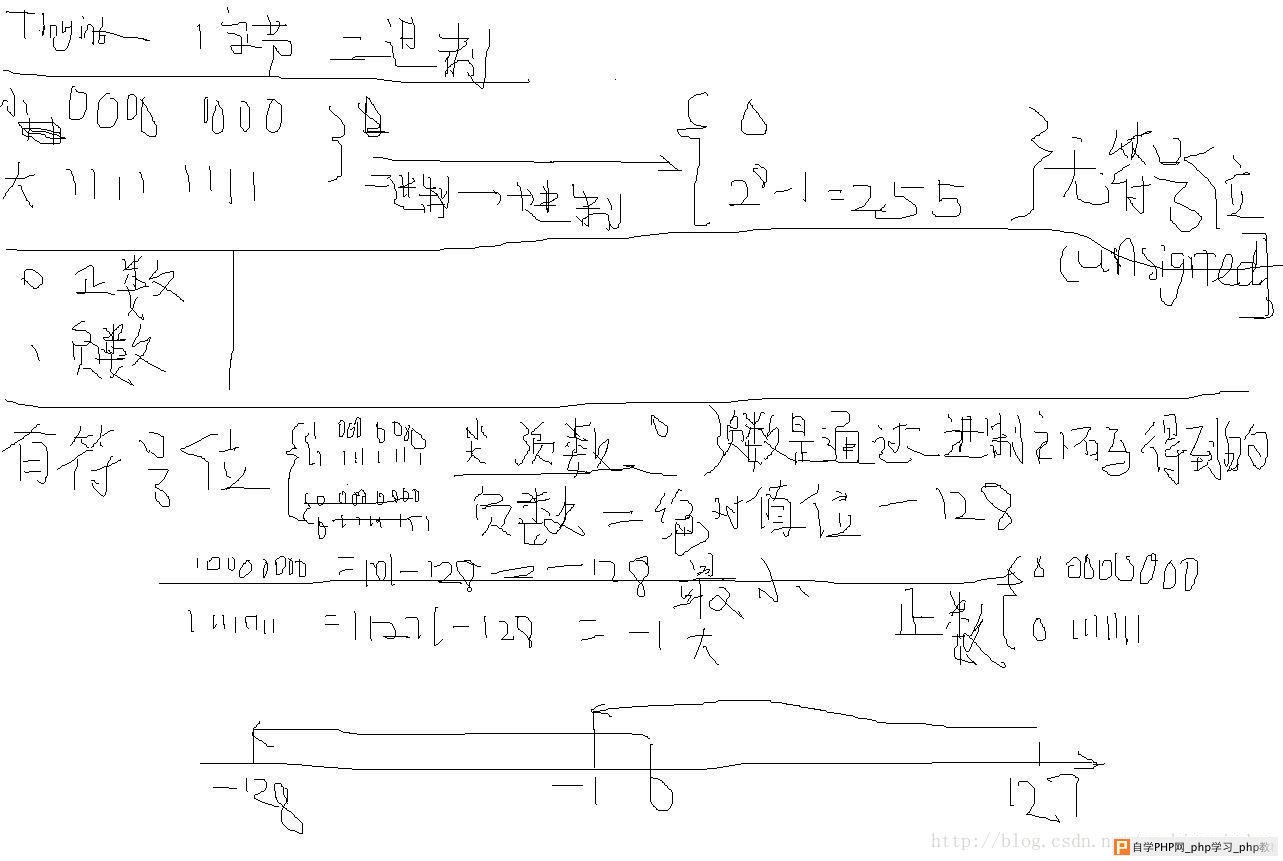 Tinyint 1字节 二进制
小 0000 0000 0
大 1111 1111 二进制→十进制 2⁸-1=255 无符号位
0 正数 (unsigned)
1 负数
有符号位 1 000 0000 负数 负数是通过进制补码得到的
1 111 1111
0 000 0000 负数=绝对值位-128
0 1111111
10000000 =|0|-128=-128 最小 0 0000000
1111111 =|127|-128 =-1 大 正数 0 1111111
-128 -1 0 127
http://blog.csdn.n
自学PHP网_php学习_php教程